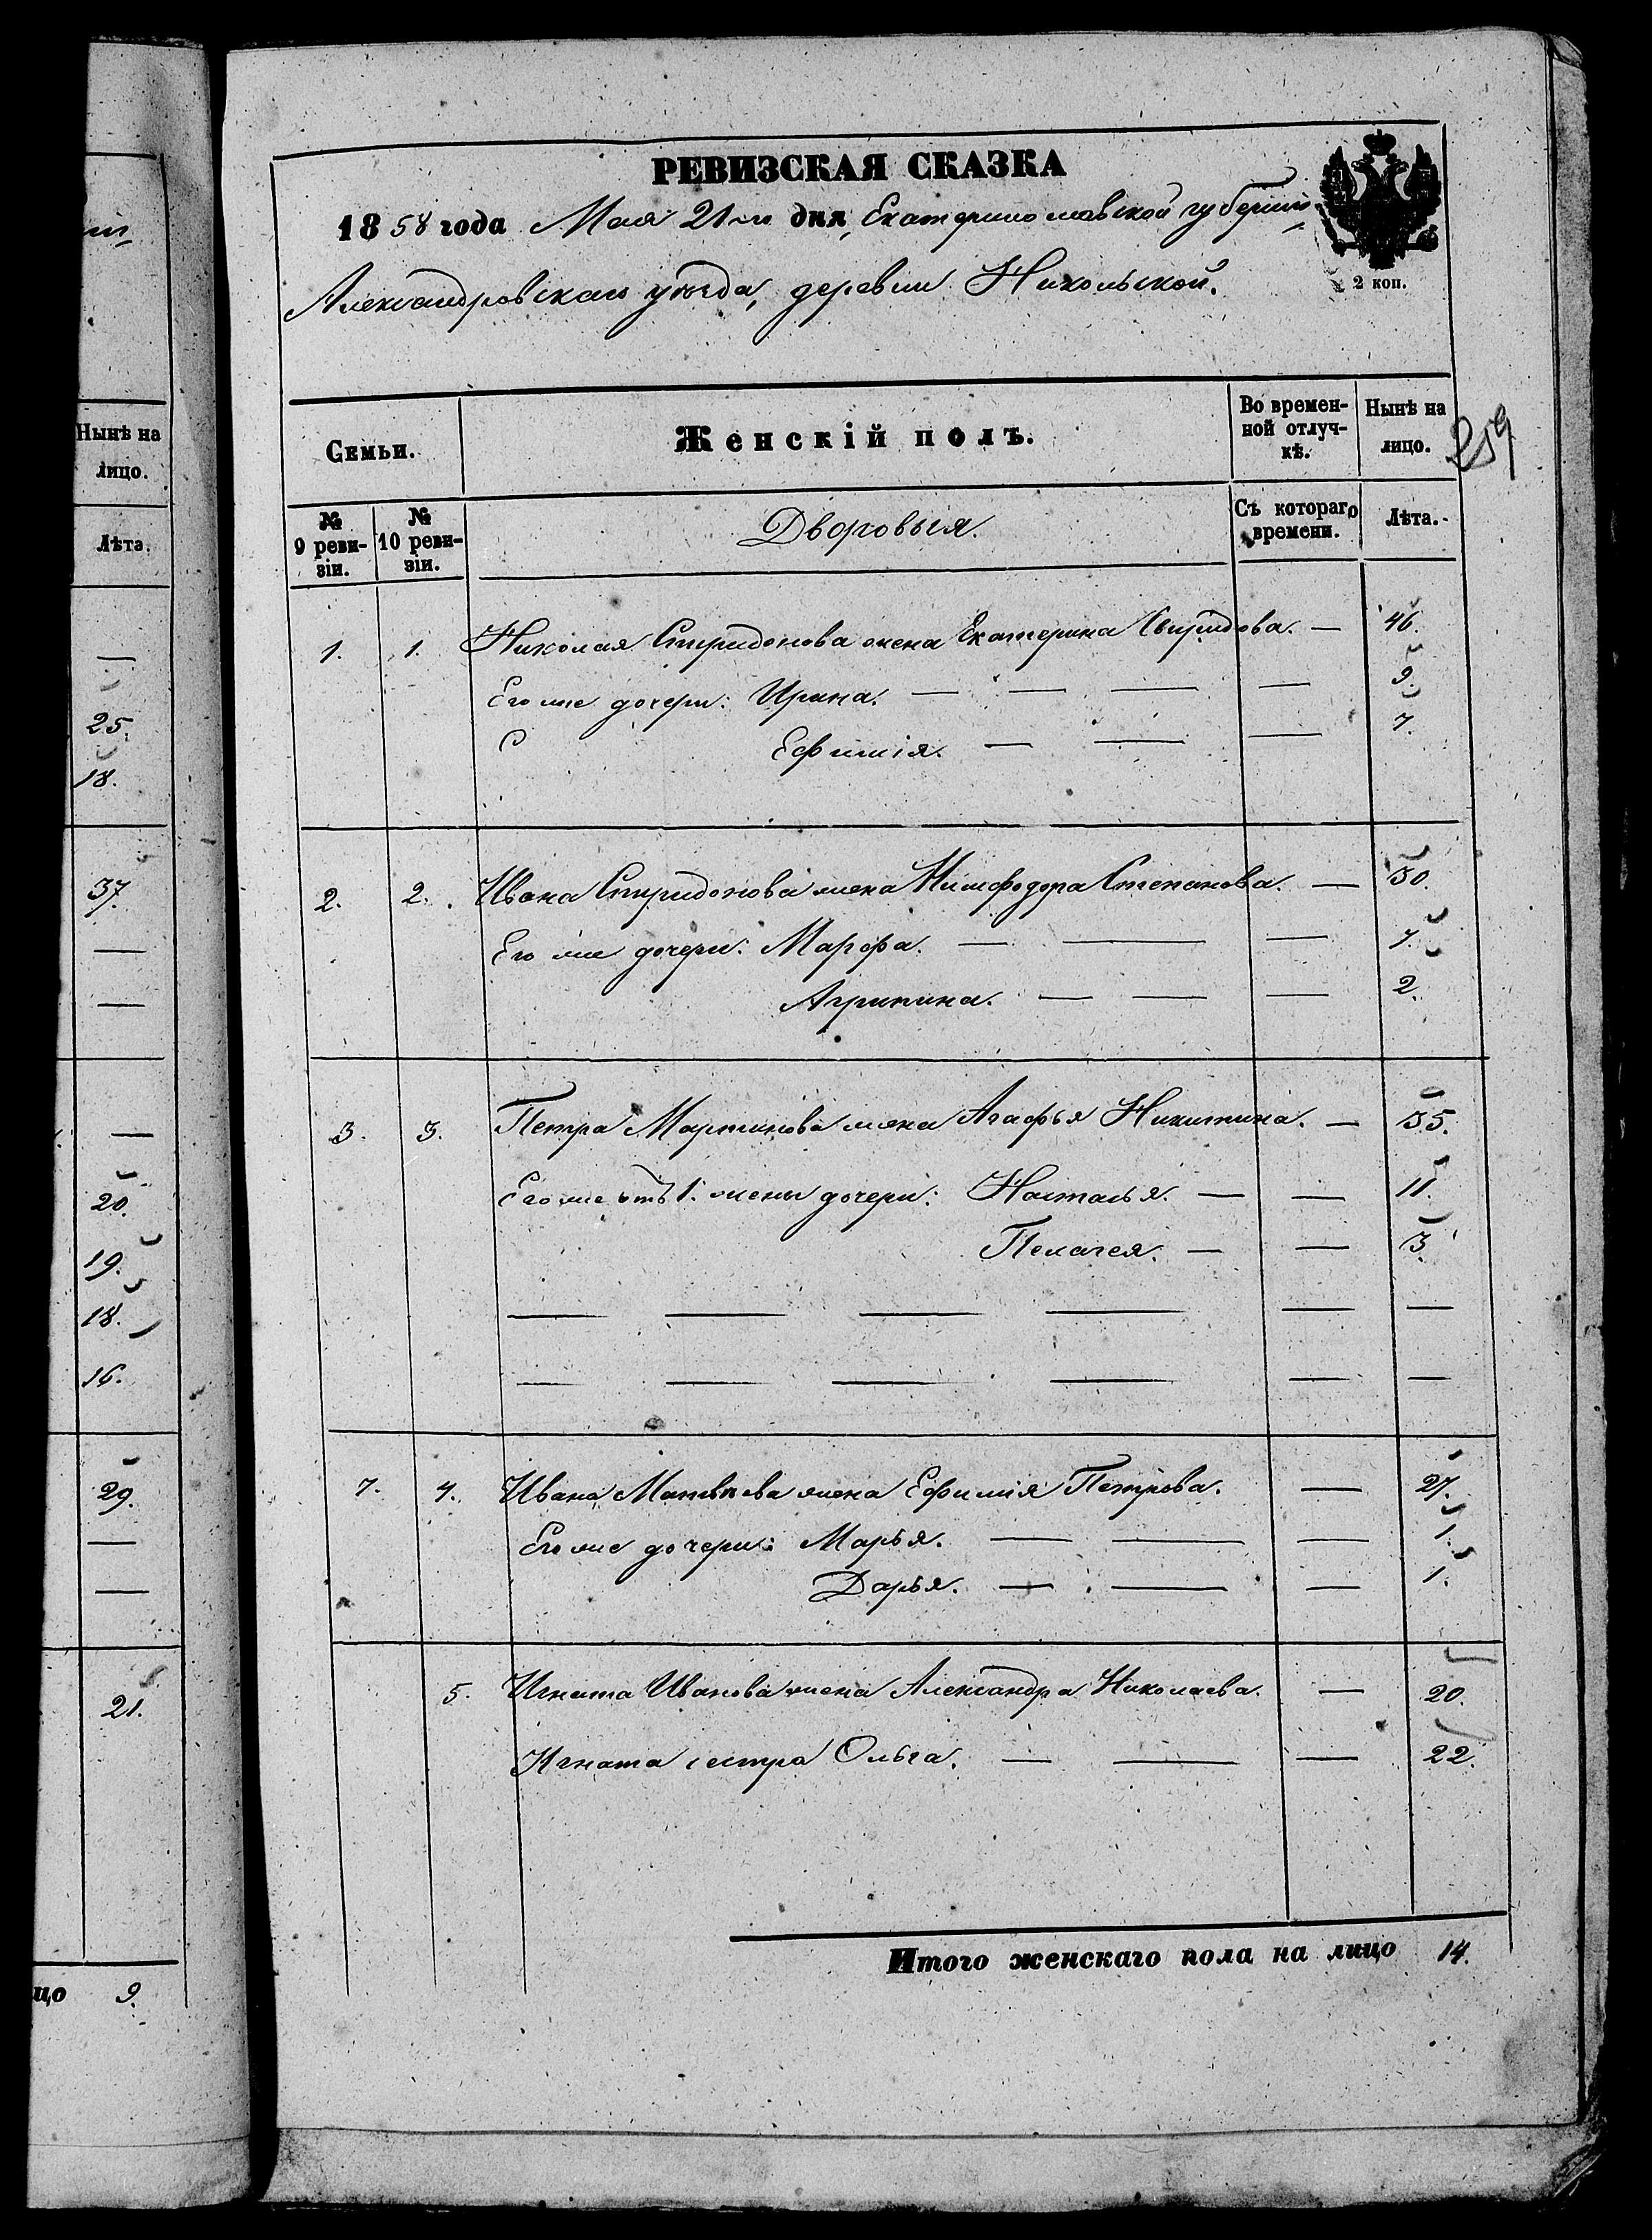 РЕВИЗСКАЯ СКАЗКА
1858 года Мая 21го дня, Екатеринославской губернии,
Александровскаго уѣзда, деревни Никольской.
2 коп.
259
Семьи.
Женскій полъ.
Во временной отлучкѣ.
Нынѣ на лицо.
№ 9 ревизіи.
№ 10 ревизіи.
Дворовыя.
Съ котораго времени.
Лѣта.
1. 1. Николая Спиридонова жена Екатерина Свиридова. — 46.
Его же дочери: Ирина. — — — — 9.
Ефимія. — — — 7.
2. 2. Ивана Спиридонова жена Нимфодора Степанова. — 30.
Его же дочери: Марфа. — — — 7.
Агрипина. — — — 2.
3. 3. Петра Мартинова жена Агафья Никитина. — 35.
Его же отъ 1. жены дочери: Настасья. — — 11.
Пелагея. — — 3.
— — — — — —
— — — — — —
7. 4. Ивана Матвѣева жена Ефимія Петрова. — 27.
Его же дочери: Марья. — — — 1.
Дарья. — — — 1.
5. Игната Иванова жена Александра Николаева. — 20.
Игната сестра Ольга. — — — 22.
Итого женскаго пола на лицо 14.
Нынѣ на
лицо.
Лѣта.
—
25.
18.
37.
—
—
—
20.
19.
18.
16.
29.
—
—
21.
цо 9.